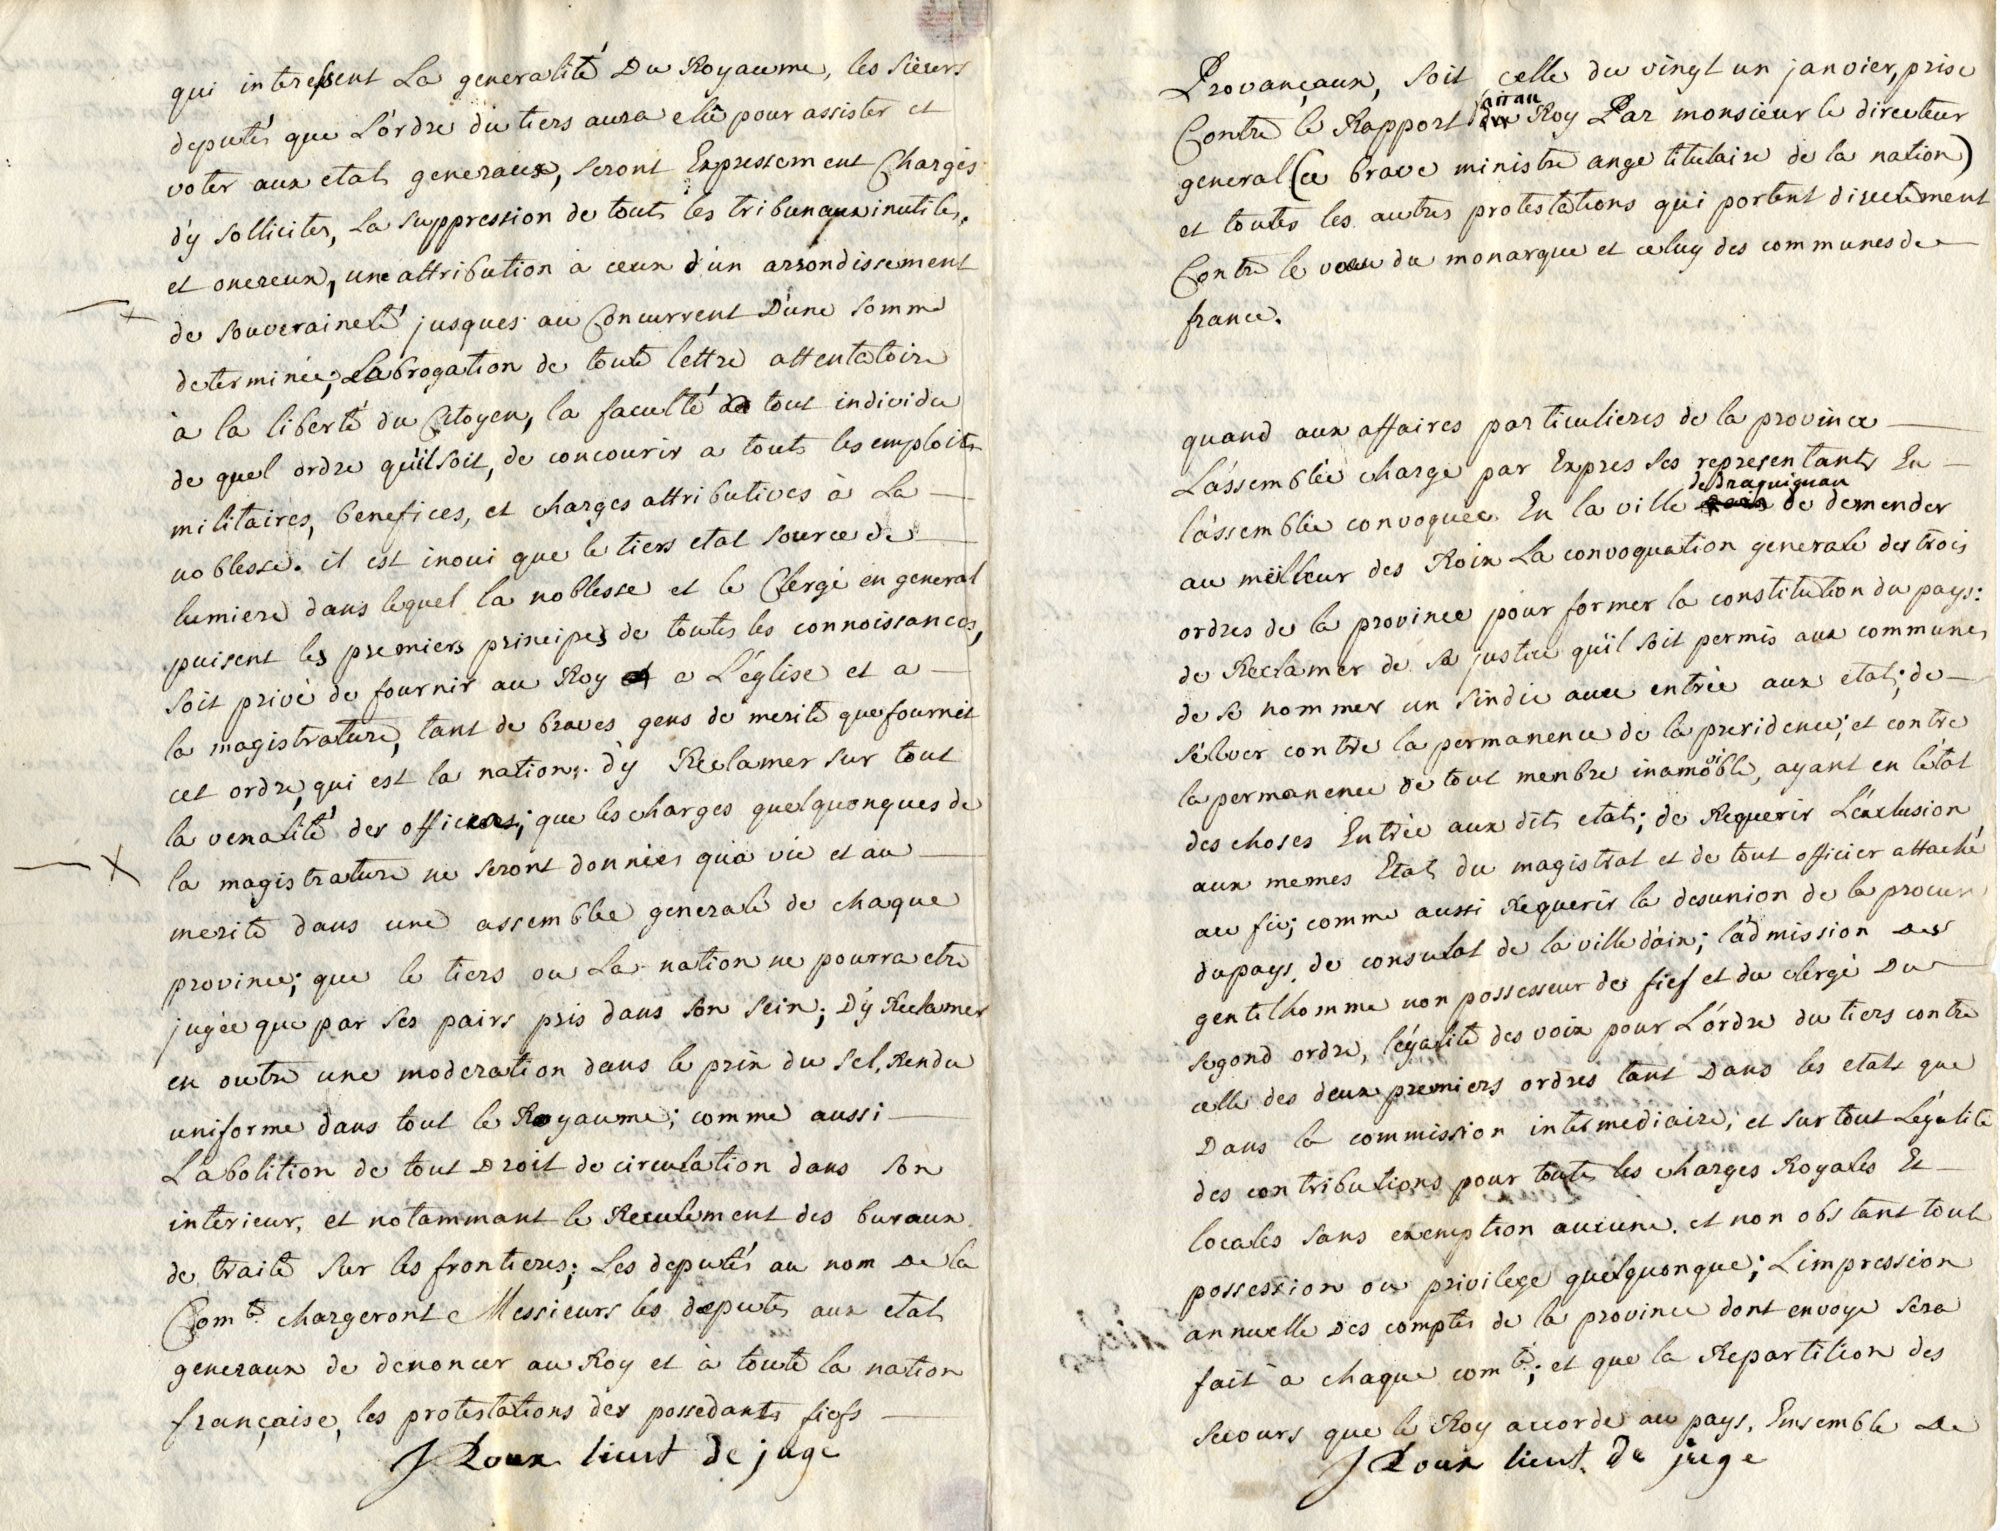 qui interessent La generalité Du Royaume, les sieurs
deputés que L'ordre du tiers aura elû pour assister et
voter aux etats generaux, seront Expressement Chargés
d'y solliciter, La suppression de touts les tribunaux inutiles,
et onereux, une attribution à ceux d'un arrondissement
de souveraineté jusques au Concurrent D'une somme
determinée; L'abrogation de toute lettre attentatoire
à la liberté du Citoyen, la faculté de tout individu
de quel ordre qu'il soit, de concourir a touts les emploits
militaires, benefices, et charges attributives à La
noblesse. il est inoui que le tiers etat source de
lumiere dans lequel la noblesse et le Clergé en general
puisent les premiers principes de toutes les connoissances,
soit privé de fournir au Roy a L'église et a
la magistrature, tant de braves gens de merite que fournit
cet ordre, qui est la nation; d'y Reclamer sur tout
la venalité des offices; que les charges quelquonques de
la magistrature ne seront données qu'a vie et au
merite dans une assemblée generale de chaque
province; que le tiers ou La nation ne pourra etre
jugée que par ses pairs pris dans son sein; D'y Reclamer
en outre une moderation dans le prix du sel, Rendu
uniforme dans tout le Royaume; comme aussi
L'abolition de tout Droit de circulation dans son
interieur, et notammant le Reculement des buraux
de traite sur les frontieres; Les deputés au nom De la
Com.té chargeront Messieurs les deputés aux etats
generaux de denoncer au Roy et à toute la nation
française, les protestations des possedants fiefs
J Roux lieut de juge
Provançaux, soit celle du vingt un janvier, prise
Contre le Rapport fait au Roy Par monsieur le directeur
general (ce brave ministre ange titulaire de la nation)
et toutes les autres protestations qui portent directement
Contre le voeu du monarque et celuy des communes de
france.
quand aux affaires particulieres de la province
L'assemblée charge par Expres ses representants En
l'assemblée convoquée En la ville de Draguignan de demender
au meilleur des Roix La convoquation generale des trois
ordres de la province pour former la constitution du pays:
de Reclamer de sa justice qu'il soit permis aux communes
de se nommer un sindic avec entrée aux etats; de
s'élever contre la permanence de la presidence; et contre
la permanence de tout menbre inamovible, ayant en l'état
des choses Entrée aux dits etats; de Requerir L'exclusion
aux memes Etats du magistrat et de tout officier attaché
au fisc; comme aussi Requerir la desunion de la procure
du pays, de consulat de la ville d'aix; l'admission Des
gentilhomme non possesseur de fief et du clergé Du
segond ordre, l'égalité des voix pour L'ordre du tiers contre
celle des deux premiers ordres tant Dans les etats que
Dans la commission intermediaire; et sur tout L'égalité
des contributions pour toutes les charges Royales Et
locales sans exemption aucune. et non obstant toute
possession ou privilege quelquonque; L'impression
annuelle Des comptes de la province dont envoye sera
fait à chaque com.té; et que la Repartition des
secours que le Roy accorde au pays, Ensemble De
J Roux lieut. De juge